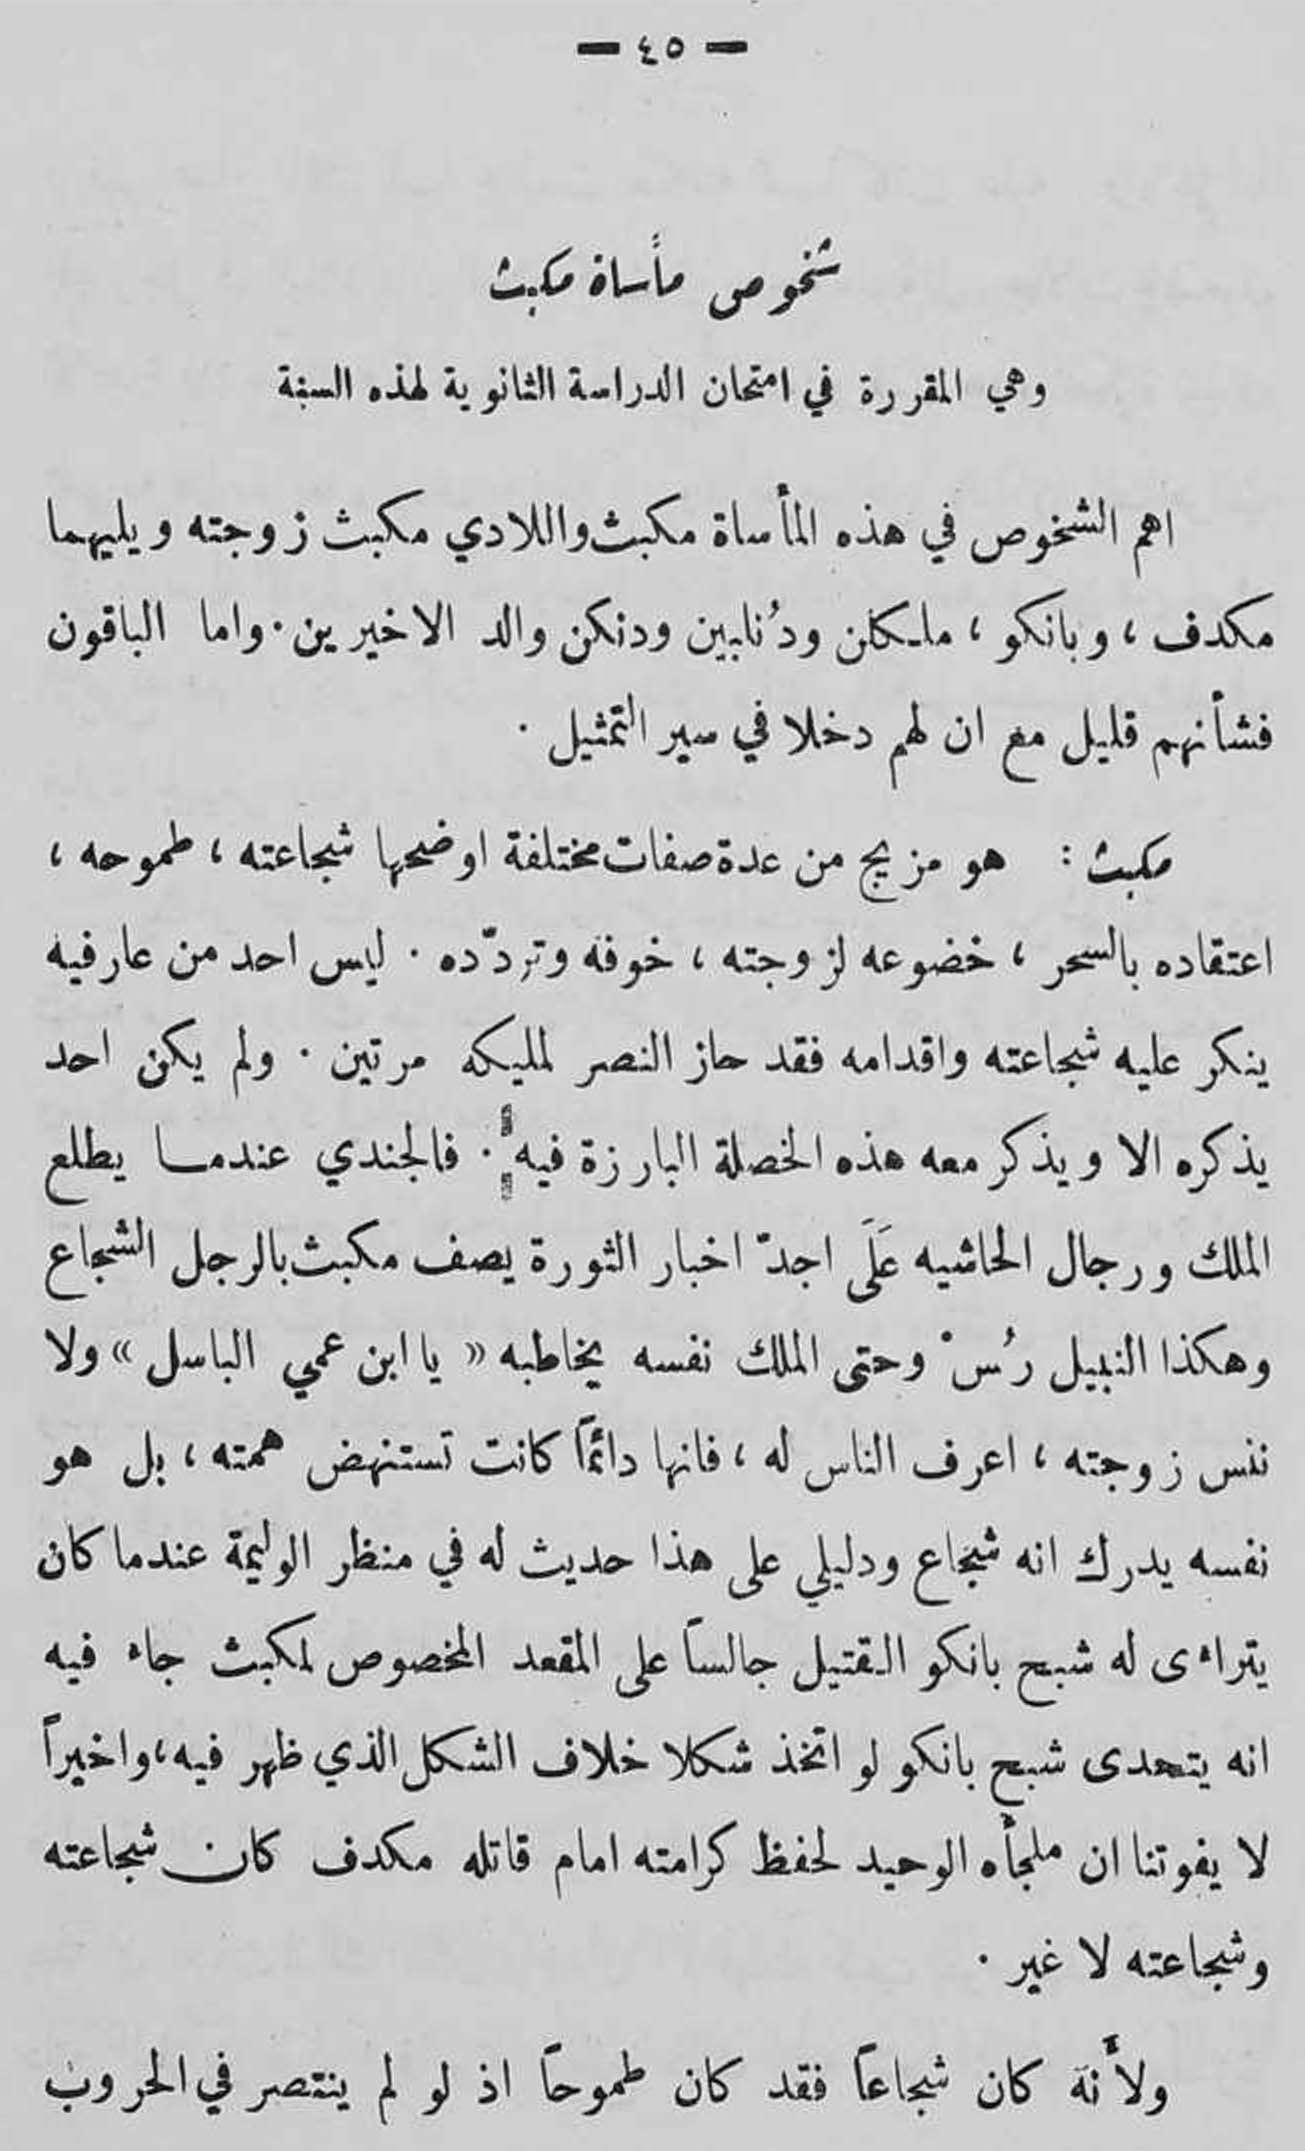 — ٤٥ —
شخوص مأساة مكبث
وهي المقررة في امتحان الدراسة الثانوية لهذه السنة
اهم الشخوص في هذه المأساة مكبث واللادي مكبث زوجته ويليهما
مكدف ، وبانكو ، ملكلن ودُنابين ودنكن والد الاخيرين . واما الباقون
فشأنهم قليل مع ان لهم دخلا في سير التمثيل .
مكبث : هو مزيج من عدة صفات مختلفة اوضحها شجاعته ، طموحه ،
اعتقاده بالسحر ، خضوعه لزوجته ، خوفه وتردّده . ليس احد من عارفيه
ينكر عليه شجاعته واقدامه فقد حاز النصر لمليكه مرتين . ولم يكن احد
يذكره الا ويذكر معه هذه الخصلة البارزة فيه . فالجندي عندما يطلع
الملك ورجال الحاشيه عَلَى اجدّ اخبار الثورة يصف مكبث بالرجل الشجاع
وهكذا النبيل رُسْ وحتى الملك نفسه يخاطبه « يا ابن عمي الباسل » ولا
ننس زوجته ، اعرف الناس له ، فانها دائماً كانت تستنهض همته ، بل هو
نفسه يدرك انه شجاع ودليلي على هذا حديث له في منظر الوليمة عندما كان
يتراءى له شبح بانكو القتيل جالساً على المقعد المخصوص لمكبث جاء فيه
انه يتحدى شبح بانكو لو اتخذ شكلا خلاف الشكل الذي ظهر فيه ، واخيراً
لا يفوتنا ان ملجأه الوحيد لحفظ كرامته امام قاتله مكدف كان شجاعته
وشجاعته لا غير .
ولأنه كان شجاعاً فقد كان طموحاً اذ لو لم ينتصر في الحروب